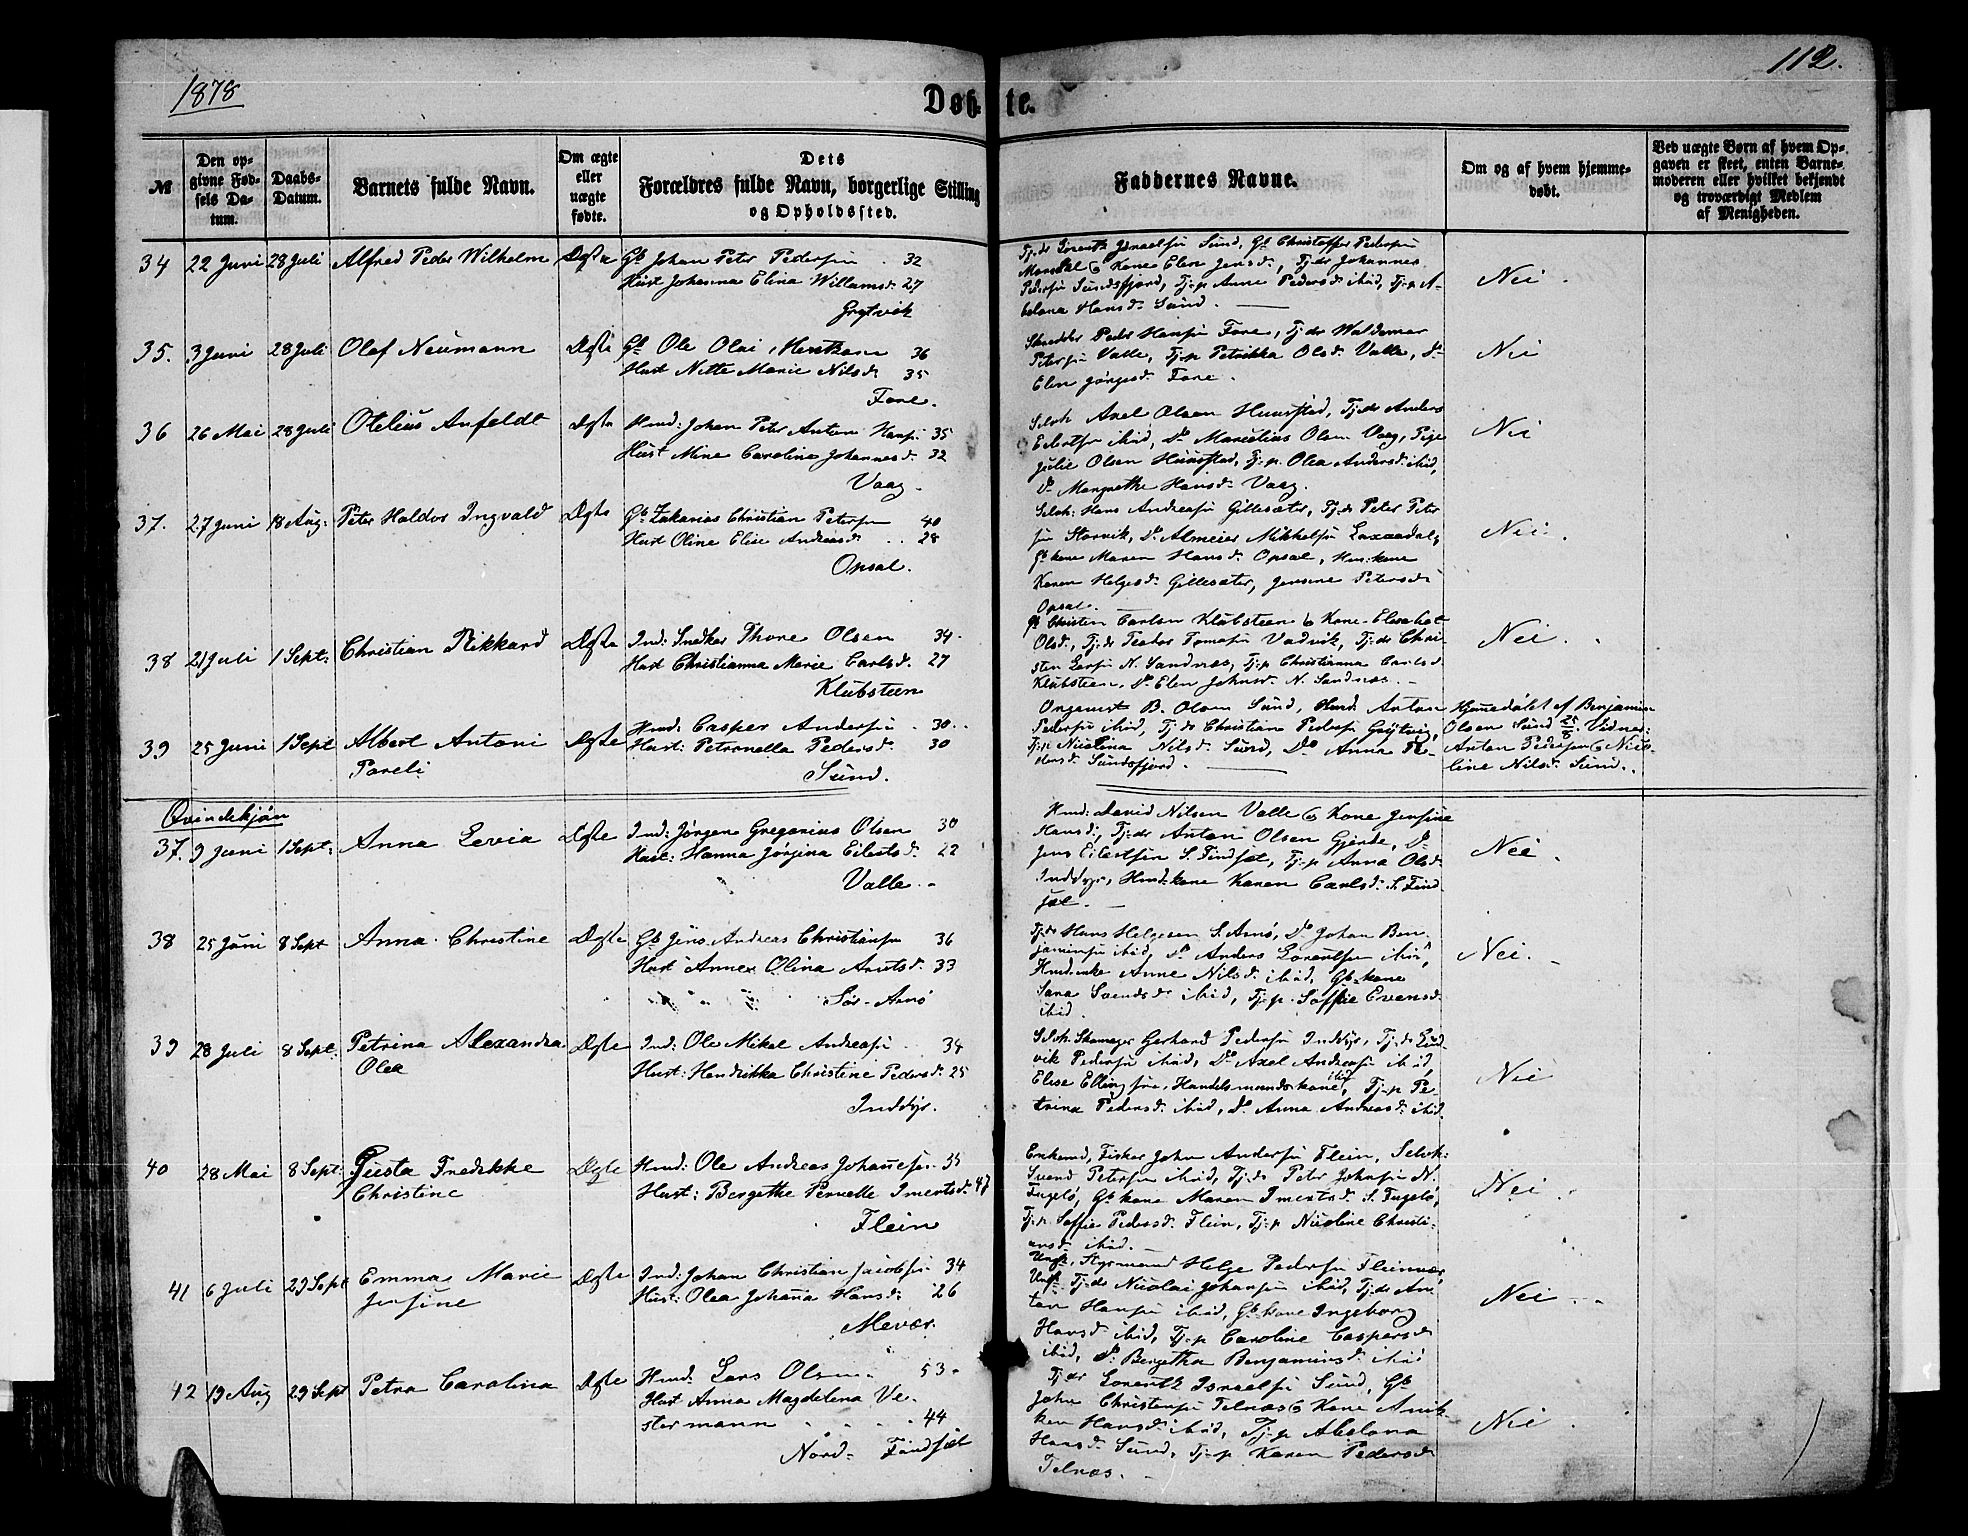 1878
112.
Døbte.
№
Den op-
givne Fød-
sels Da-
tum.
Daabs-
Datum.
Barnets fulde Navn.
Om ægte
eller
uægte
fødte.
Dets
Forældres fulde Navn, borgerlige Stilling
og Opholdssted.
Faddernes Navne.
Om og af hvem hjemme-
døbt.
Ved uægte Børn af hvem Op-
gaven er skeet, enten Barne-
moderen eller hvilket bekjendt
og troværdigt Medlem
af Menigheden.
34 22 Juni 28 Juli Alfred Peder Wilhelm Ægte Gb Johan Peter Pedersen 32
Hust Johanna Elina Willumsd. 27
Grytvik
Tj.dr Lorentz Israelsen Sund, Gb Christoffer Pedersen
& Kone Elen Jensd., Tj.dr Johannes
Pedersen Sundsfjord, Tj.p Anne Pedersd. ibid, Tj.p A-
belona Hansd. Sund.
Nei.
35. 3 Juni 28 Juli Olaf Neumann Ægte Gb Ole Olai Hentzen 36
Hust Nette Marie Nilsd. 35
Fore.
Peder Hansen Fore, Tj.dr Waldemar
Petersen Valle, Tj.p Petrikka Olsd. Valle, Do
Elen Jørgesd. Fore.
Nei
36 26 Mai 28 Juli Otelius Anfeldt Ægte Hmd: Johan Peter Anton Hansen 35
Hust Mina Carolina Johannesd. 32
Vaag.
Selvh Axel Olsen Hunstad, Tj.dr Anders
Eilertsen ibid, Do Marcelius Olsen Vaag, Pige
Julie Olsen Hunstad, Tj.p. Olea Andersd. ibid,
Do Margrethe Hansd. Vaag.
Nei
37. 27 Juni 18 Aug: Peter Haldor Ingvald Ægte Gb Zakarias Christian Petersen 40
Hust Oline Elise Andreasd. 28
Opsal.
Selvh: Hans Andreasen Gillesæter, Tj.dr Peter Peter
sen Storvik, Do Almeier Mikkelsen Laxaadal,
Gb kone Maren Hansd. Opsal, Hus.kone
Karen Helgesd. Gillesæter, Jensine Petersd.
Opsal.
Nei.
38 21 Juli 1 Sept: Christian Rikkard Ægte Ind: Snedker Thore Olsen 34
Hust Christianna Marie Carlsd. 27
Klubsteen
Gb Christen Carlsen Klubsteen & Kone Elisabet
Olsd., Tj.dr Teodor Tomasen Vadvik, Tj.dr Chri-
sten Larsen N. Sandnæs, Tj.p Christianna Carlsd.
Klubsteen, Do Elen Johnsd. N. Sandnæs.
Nei.
39 25 Juni 1 Sept Albert Antoni Ægte Hmd: Casper Andersen 30
Pareli Hust: Petronella Pedersd. 30
Sund.
Ungemst B. Olsen Sund, Hmd. Anton
Pedersen ibid, Tj.dr Christian Pedersen Grytvig,
Tj.p Nicolina Nilsd. Sund, Do Anna Pe-
dersd. Sundsfjord.
Hjemedøbt af Benjamin
Olsen Sund 25/8. Vidner:
Anton Pedersen & Nico-
line Nilsd. Sund.
Qvindekjøn
37. 9 Juni 1 Sept: Anna Levia Ægte Ind: Jørgen Gregorius Olsen 30
Hust: Hanna Jørgina Eilertsd. 22
Valle.
Hmd: David Nilsen Valle & Kone Jensine
Hansd., Tj.dr Anton Olsen Gjerde, Do
Jens Eilertsen S. Findset, Tj.p Anna Olsd.
Inddyr, Hmd.kone Karen Carlsd. S. Find
set.
Nei.
38 25 Juni 8 Sept Anna Christine Ægte Gb Jens Andreas Christiansen 36
Hust Anne Olina Arntsd. 33
Sør-Arnø
Tj.dr Hans Helgesen S. Arnø, Do Johan Ben-
jaminsen ibid, Do Anders Lorentsen ibid,
Hmdenke Anne Nilsd. ibid, Gb kone
Sara Svendsd. ibid, Tj.p. Soffie Evensd.
ibid.
Nei.
39 28 Juli 8 Sept. Petrina Alexandra Ægte Ind: Ole Mikal Andreasen 34
Olea Hust: Hendrikka Christine Pedersd. 25
Inddyr.
Selvh. Skomager Gerhard Pedersen Inddyr, Tj.dr Lud-
vik Pedersen ibid, Do Axel Andreasen ibid,
Elise Ellingsen, Handelsmandskone ibid, Tj.p Pe-
trina Pedersd. ibid, Do Anna Andreasd. ibid.
Nei
40 28 Mai 8 Sept: Gusta Fredrikke Ægte Hmd: Ole Andreas Johannesen 35
Christine Hust: Bergethe Pernelle Imertsd. 47
Flein
Enkemd, Fisker John Andersen Flein, Selvh:
Svend Petersen ibid, Tj.dr Peter Johnsen N.
Fugelø, Gb kone Maren Imertsd. S. Fugelø,
Tj.p. Soffie Pedersd. Flein, Tj.p Nicoline Christi-
ansd. ibid.
Nei.
41 6 Juli 29 Sept Emma Marie Ægte Ind: Johan Christian Jacobsen 34
Jensine Hust: Olea Johanna Hansd. 26
Mevær.
Ungk. Styrmand Helge Pedersen Fleinvær,
Ungk. Tj.dr Nicolai Johansen ibid, Tj.dr An-
ton Hansen ibid, Gb kone Ingeborg
Hansd. ibid, Tj.p Caroline Caspersd.
ibid, Do Bergetha Benjaminsd. ibid
Nei.
42 19 Aug 29 Sept Petra Carolina Ægte Hmd. Lars Olsen 53
Hust Anna Magdelena Ve-
stermann 44
Nord-Findset
Tj.dr Lorentz Israelsen Sund, Gb
John Christensen Telnæs & Kone Anik-
ken Hansd. ibid, Tj.p Abelona
Hansd. Sund, Tj.p Karen Pedersd.
Telnæs.
Nei